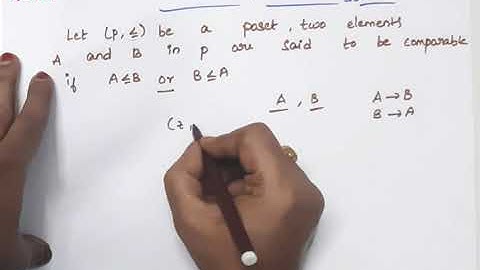 Let (p, ≤) be a poset, two elements
A and B in p are said to be comparable
if A ≤ B or B ≤ A
A , B A → B
B → A
(z ,